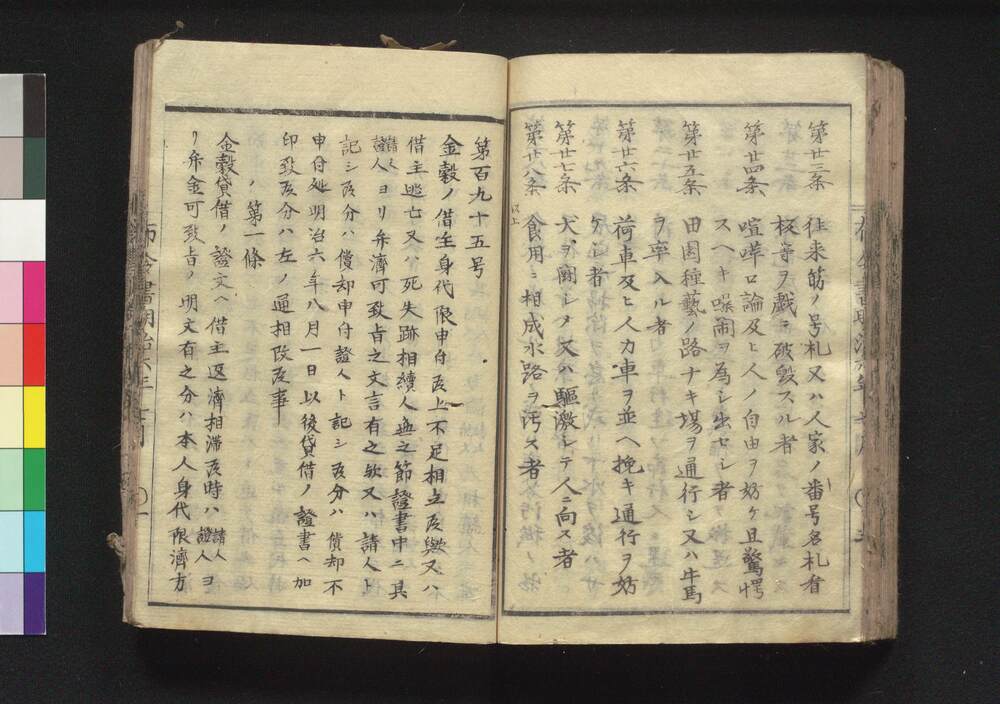 第廿三条 往来筋ノ号札又ハ人家ノ番号名札看
板等ヲ戯ニ破毀スル者
第廿四条 喧嘩口論及ヒ人ノ自由ヲ妨ケ且驚愕
スヘキ噪閙ヲ為シ出セシ者
第廿五条 田園種藝ノ路ナキ場ヲ通行シ又ハ牛馬
ヲ牽入ル者
第廿六条 荷車及ヒ人力車ヲ並ヘ挽キ通行ヲ妨
ケシ者
第廿七条 犬ヲ闘シメ又ハ驅激シテ人ニ向ス者
第廿八条 食用ニ相成水路ヲ汚ス者
以上
第百九十五号
金穀ノ借主身代限申付候上不足相立候歟又ハ
借主逃亡又ハ死失跡相續人無之節證書中ニ其
請人
證人ヨリ弁濟可致旨之文言有之欤又ハ請人ト
記シ候分ハ償却申付證人ト記シ候分ハ償却不
申付処明治六年八月一日以後貸借ノ證書ヘ加
印致候分ハ左ノ通相改候事
第一條
金穀貸借ノ證文ヘ借主返濟相滞候時ハ請人
證人ヨ
リ弁金可致旨ノ明文有之分ハ本人身代限濟方
布令書明治六年七月